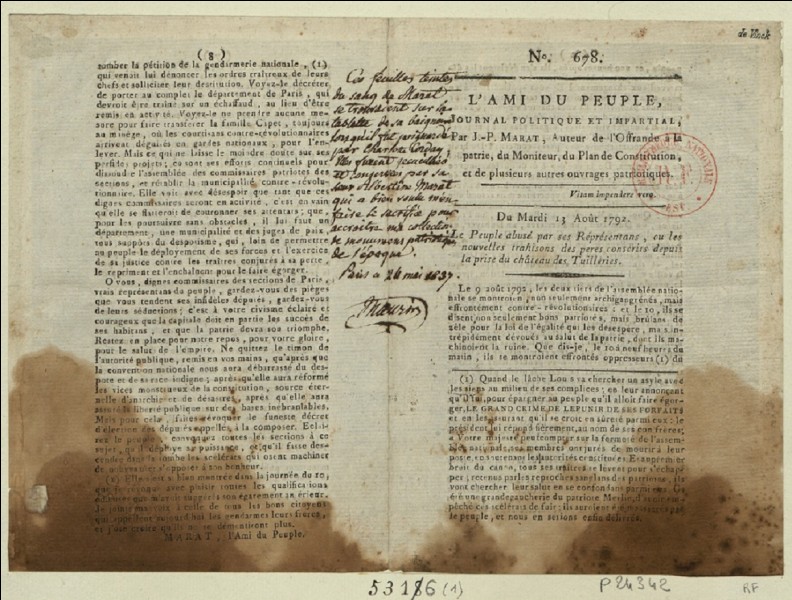 de Vinck
( 8 )
tomber la pétition de la gendarmerie nationale, (1)
qui venais lui dénoncer les ordres traîtreux de leurs
chefs et solliciter leur destitution. Voyez-le décréter
de porter au complet le département de Paris, qui
devroit être traîné sur un échaffaud, au lieu d'être
remis en activité. Voyez-le ne prendre aucune me-
sure pour faire transférer la famille Capet, toujours
au manège, où les courtisans contre-révolutionnaires
arrivent déguisés en gardes nationaux, pour l'en-
lever. Mais ce qui ne laisse le moindre doute sur ses
perfides projets; ce sont ses efforts continuels pour
dissoudre l'assemblée des commissaires patriotes des
sections, et rétablir la municipalité contre-révolu-
tionnaire. Elle voit avec désespoir que tant que ces
dignes commissaires seront en activité, c'est en vain
qu'elle se flatteroit de couronner ses attentats; que,
pour les poursuivre sans obstacles, il lui faut un
département, une municipalité et des juges de paix
tous suppôts du despotisme, qui, loin de permettre
au peuple le déployement de ses forces et l'exercice
de sa justice contre les traîtres conjurés à sa perte,
le repriment et l'enchaînent pour le faire égorger.
O vous, dignes commissaires des sections de Paris,
vrais représentans du peuple, gardez-vous des pièges
que vous tendent ses infidèles députés, gardez-vous
de leurs séductions; c'est à votre civisme éclairé et
courageux que la capitale doit en partie les succès de
ses habitans, et que la patrie devra son triomphe.
Restez en place pour notre repos, pour votre gloire,
pour le salut de l'empire. Ne quittez le timon de
l'autorité publique, remis en vos mains, qu'après que
la convention nationale nous aura débarrassé du des-
pote et de sa race indigne; après qu'elle aura réformé
les vices monstrueux de la constitution, source éter-
nelle d'anarchie et de désastres; après qu'elle aura
assuré la liberté publique sur des bases inébranlables.
Mais pour cela, faites révoquer le funeste décret
d'élection des députés appellés à la composer. Eclai-
rez le peuple, convoquez toutes les sections à ce
sujet, qu'il déploye sa puissance, et qu'il fasse des-
cendre dans la tombe les scélérats qui osent machiner
de nouveau s'opposer à son bonheur.
(1) Elle s'est si bien montrée dans la journée du 10,
MARAT, l'Ami du Peuple.
Ces feuilles teintes
du sang de Marat
se trouvaient sur la
tablette de sa baignoire
lorsqu'il fut poignardé
par Charlotte Corday;
Elles furent recueillies
et conservées par sa
sœur Albertine Marat
qui a bien voulu m'en
faire le sacrifice pour
accroître ma collection
de monumens patriotiques
de l'époque.
Paris a 26 mai 1837.
Maurin
No. 678.
L'AMI DU PEUPLE,
JOURNAL POLITIQUE ET IMPARTIAL,
Par J.-P. MARAT, Auteur de l'Offrande à la
patrie, du Moniteur, du Plan de Constitution,
et de plusieurs autres ouvrages patriotiques.
Vitam impendere vero.
Du Mardi 13 Août 1792.
Le Peuple abusé par ses Réprésentans, ou les
nouvelles trahisons des peres conscrits depuis
la prise du château des Tuilleries.
Le 9 août 1792, les deux tiers de l'assemblée natio-
nale se montroient, non seulement archigangrénés, mais
effrontément contre-révolutionnaires; et le 10, ils se
disent non seulement bons patriotes, mais brûlans de
zèle pour la loi de l'égalité qui les désespère, mais in-
trépidément dévoués au salut de la patrie, dont ils ma-
chinoient la ruine. Que dis-je, le 10 à neuf heures du
matin, ils se montroient effrontés oppresseurs (1) du
(1) Quand le lâche Louis va chercher un asyle avec
les siens au milieu de ses complices; en leur annonçant
qu'il l'a fui, pour épargner au peuple qu'il alloit faire égor-
ger, LE GRAND CRIME DE LE PUNIR DE SES FORFAITS
et en les jurant qu'il se croit en sûreté parmi eux: le
président lui répond fièrement, au nom de ses confrères;
« Votre majesté peut compter sur la fermeté de l'assem-
blée nationale, ses membres ont juré de mourir à leur
bruit du canon, tous ses traîtres se lèvent pour s'échap-
le peuple, et nous en serions enfin délivrés.
53186 (1)
P24342
RF